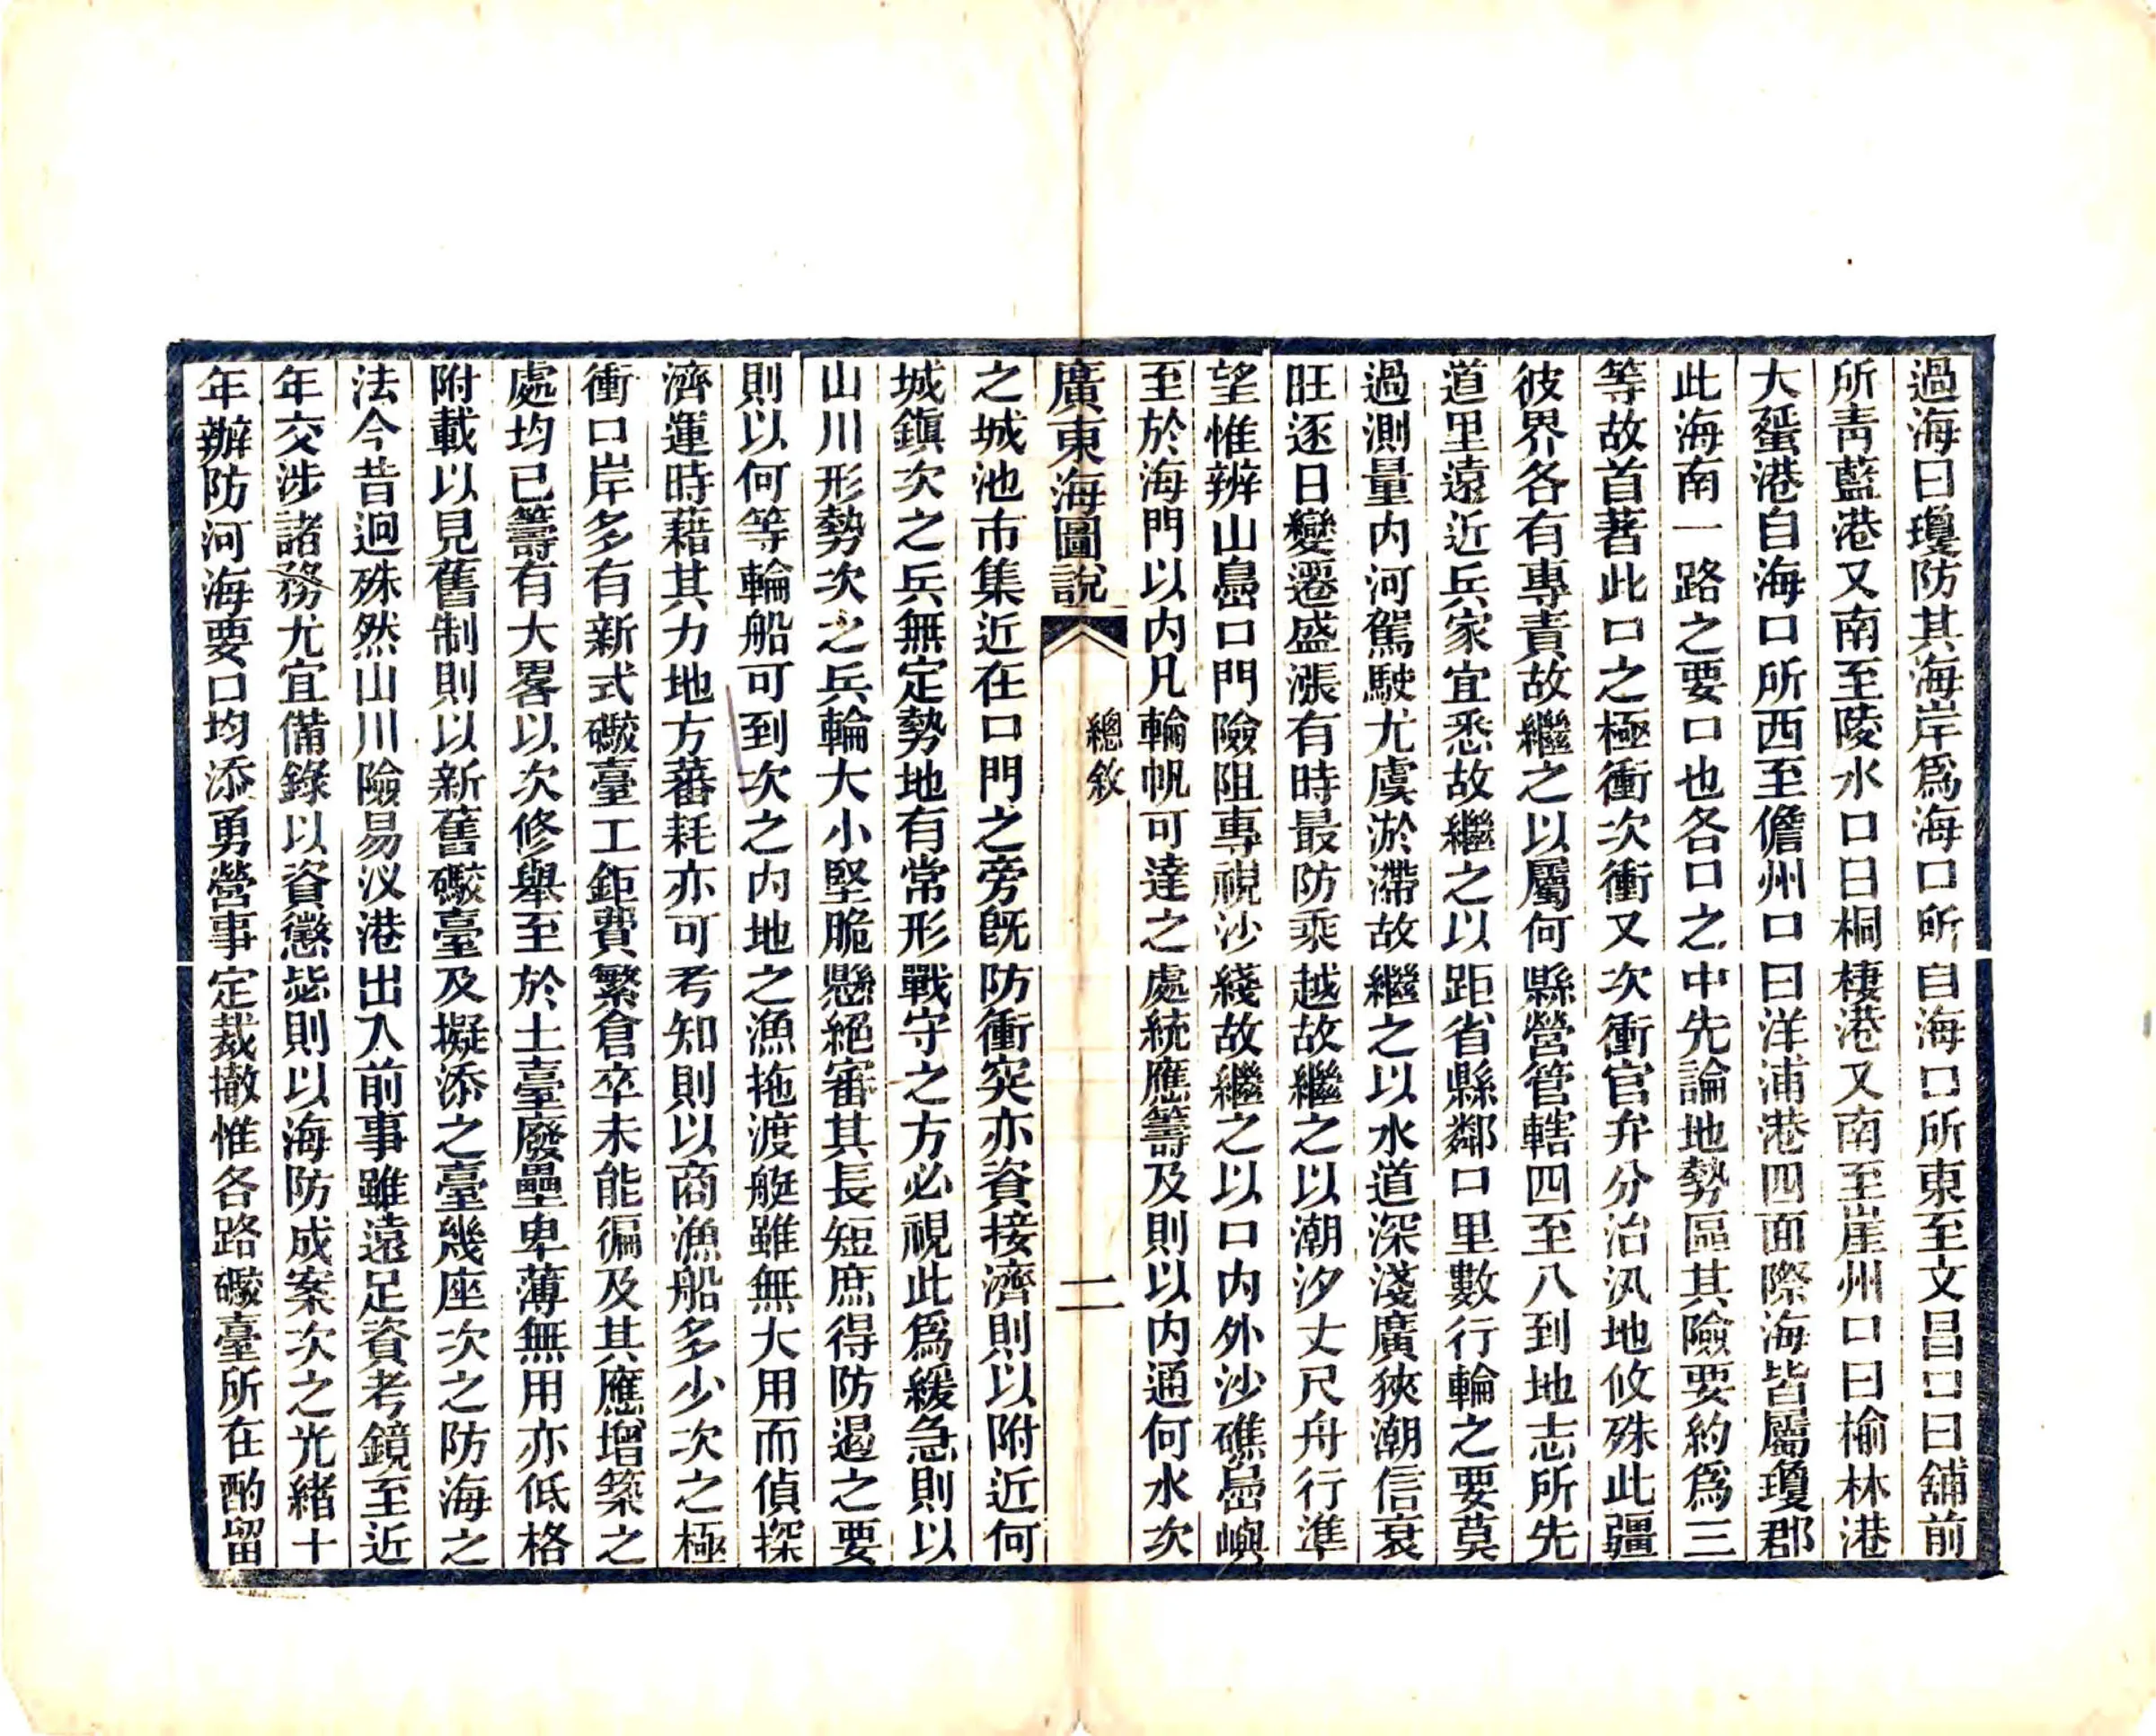 過海曰瓊防其海岸爲海口所自海口所東至文昌口曰舖前
所靑藍港又南至陵水口曰桐棲港又南至崖州口曰榆林港
大蜑港自海口所西至儋州口曰洋浦港四面際海皆屬瓊郡
此海南一路之要口也各口之中先論地勢區其險要約爲三
等故首著此口之極衝次衝又次衝官弁分治汛地攸殊此疆
彼界各有專責故繼之以屬何縣營管轄四至八到地志所先
道里遠近兵家宜悉故繼之以距省縣鄰口里數行輪之要莫
過測量内河駕駛尤虞淤滯故繼之以水道深淺廣狹潮信衰
旺逐日變遷盛漲有時最防乘越故繼之以潮汐丈尺舟行準
望惟辨山嵒口門險阻專視沙綫故繼之以口内外沙礁嵒嶼
至於海門以内凡輪帆可達之處統應籌及則以内通何水次
廣東海圖說
總敘
二
之城池市集近在口門之旁旣防衝突亦資接濟則以附近何
城鎭次之兵無定勢地有常形戰守之方必視此爲緩急則以
山川形勢次之兵輪大小堅脆懸絕審其長短庶得防遏之要
則以何等輪船可到次之内地之漁拖渡艇雖無大用而偵探
濟運時藉其力地方蕃耗亦可考知則以商漁船多少次之極
衝口岸多有新式礮臺工鉅費繁倉卒未能徧及其應增築之
處均已籌有大畧以次修舉至於土臺廢壘卑薄無用亦低格
附載以見舊制則以新舊礮臺及擬添之臺幾座次之防海之
法今昔迥殊然山川險易汊港出入前事雖遠足資考鏡至近
年交涉諸務尤宜備錄以資懲毖則以海防成案次之光緖十
年辦防河海要口均添勇營事定裁撤惟各路礮臺所在酌留